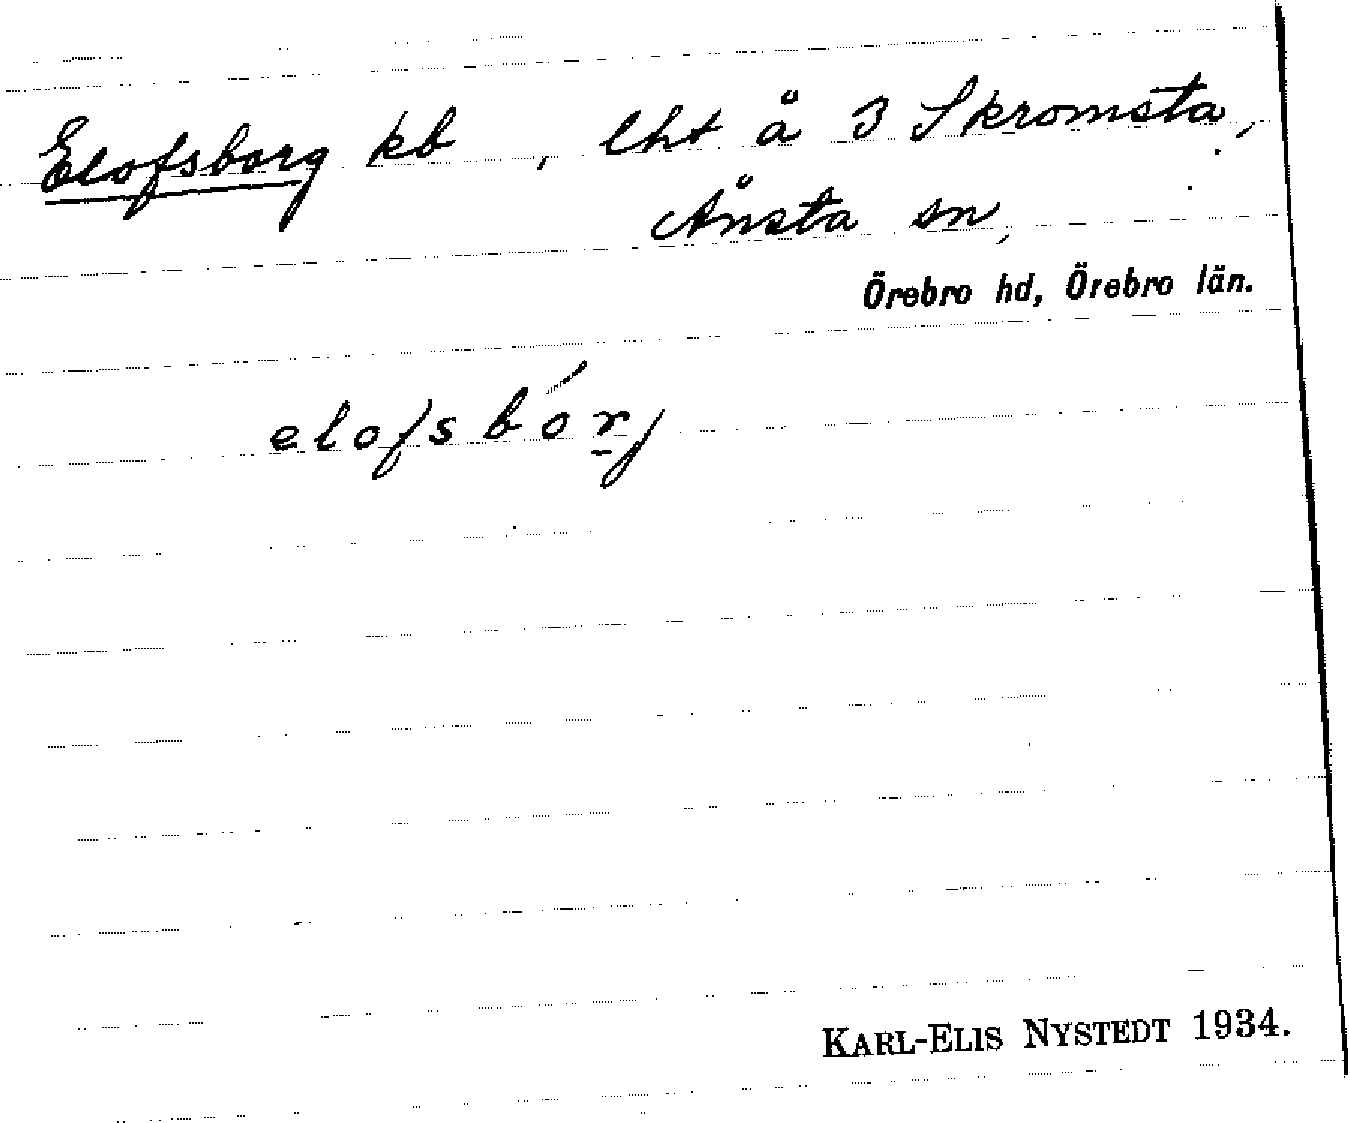 Elofsborg kb, lht å 3 Skromsta,
Ånsta sn,
Örebro hd, Örebro län.
elofsbórj
KARL-ELIS NYSTEDT 1934.